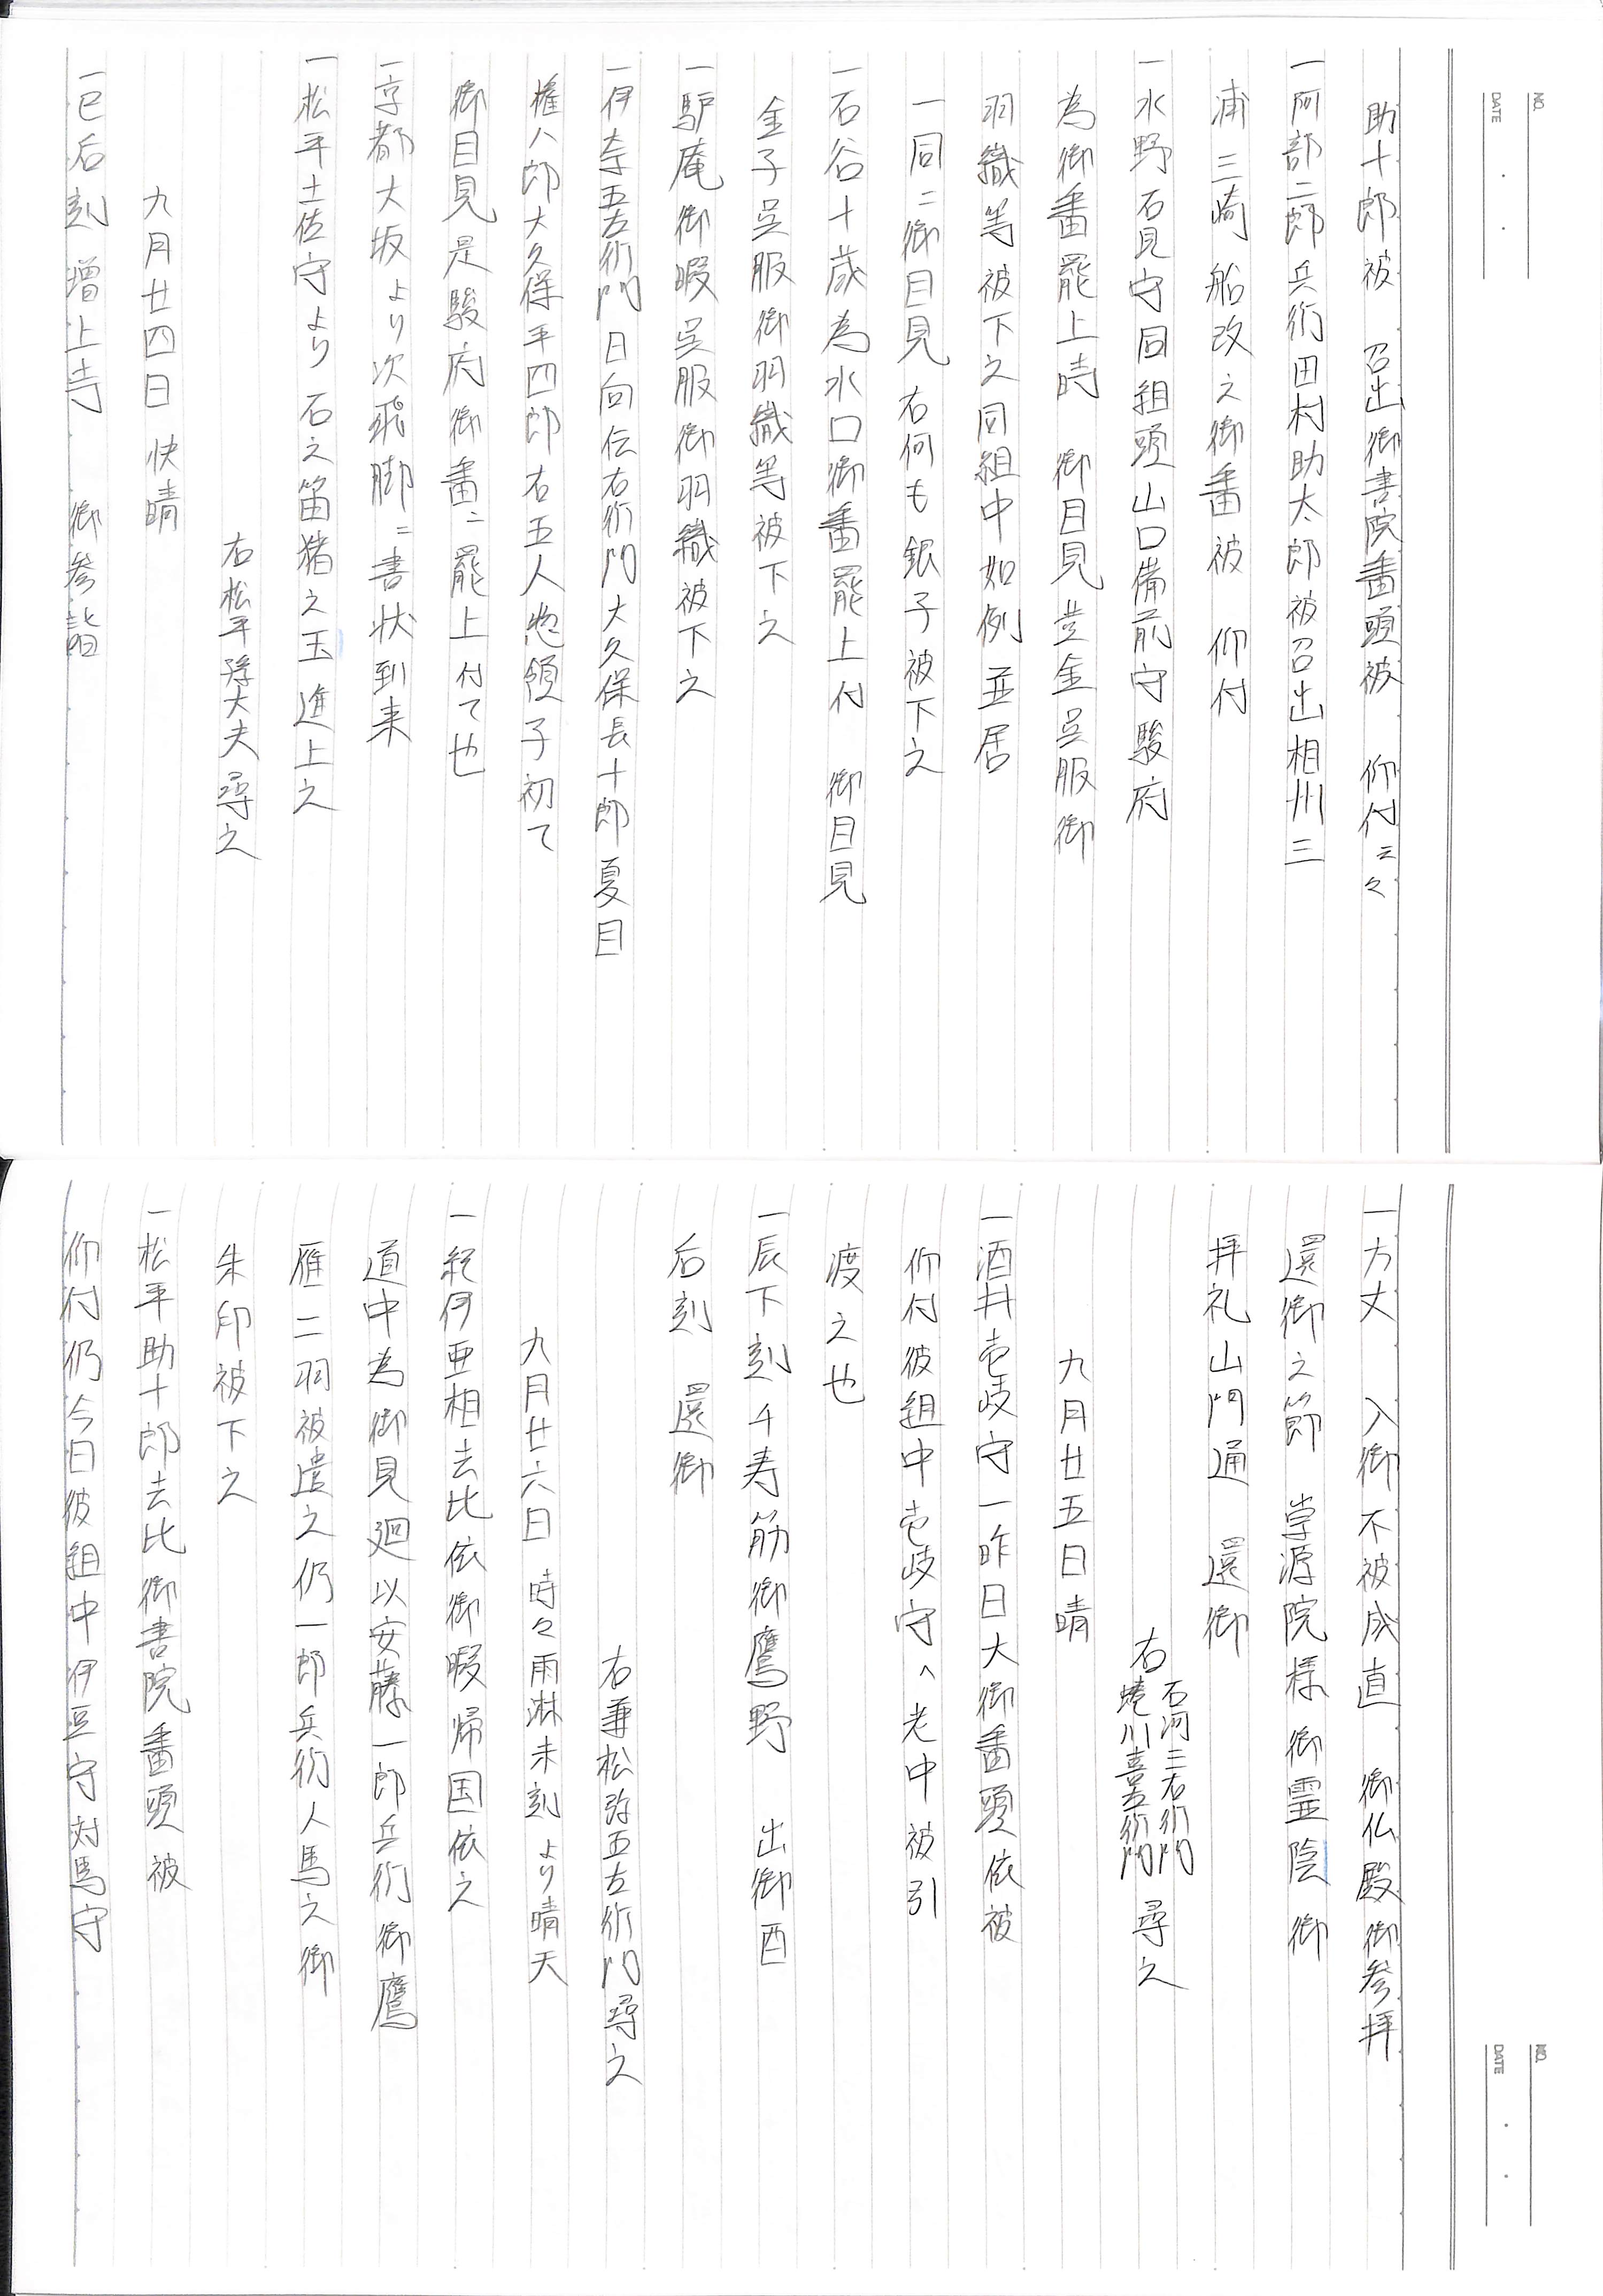 NO.
DATE
助十郎被　召出御書院番頭被　仰付云々
一阿部二郎兵衛田村助太郎被召出相州三
浦三崎船改之御番被　仰付
一水野石見守同組頭山口備前守駿府
為御番罷上時　御目見並金呉服御
羽織等被下之同組中如例並居
一同ニ御目見右何も銀子被下之
一石谷十蔵為水口御番罷上付　御目見
金子呉服御羽織等被下之
一驢庵御暇呉服御羽織被下之
一伊奈五左衛門日向伝右衛門大久保長十郎夏目
権八郎大久保平四郎右五人惣領子初て
御目見是駿府御番ニ罷上付て也
一京都大坂より次飛脚ニ書状到来
一松平土佐守より石之笛猪之玉進上之
右松平隼大夫尋之
九月廿四日　快晴
一巳后刻　増上寺　御参詣
NO.
DATE
一方丈　入御不被成直　御仏殿御参拝
還御之節　崇源院様御霊陰御
拝礼山門通　還御
右　石河三右衛門　蜷川喜左衛門　尋之
九月廿五日晴
一酒井壱岐守一昨日大御番頭依被
仰付彼組中壱岐守へ老中被引
渡之也
一辰下刻千寿筋御鷹野　出御酉
后刻　還御
右兼松弥五左衛門尋之
九月廿六日　時々雨淋未刻より晴天
一紀伊亜相去比依御暇帰国依之
道中為御見廻以安藤一郎兵衛御鷹
雁二羽被遣之仍一郎兵衛人馬之御
朱印被下之
一松平助十郎去比御書院番頭被
仰付仍今日彼組中伊豆守対馬守